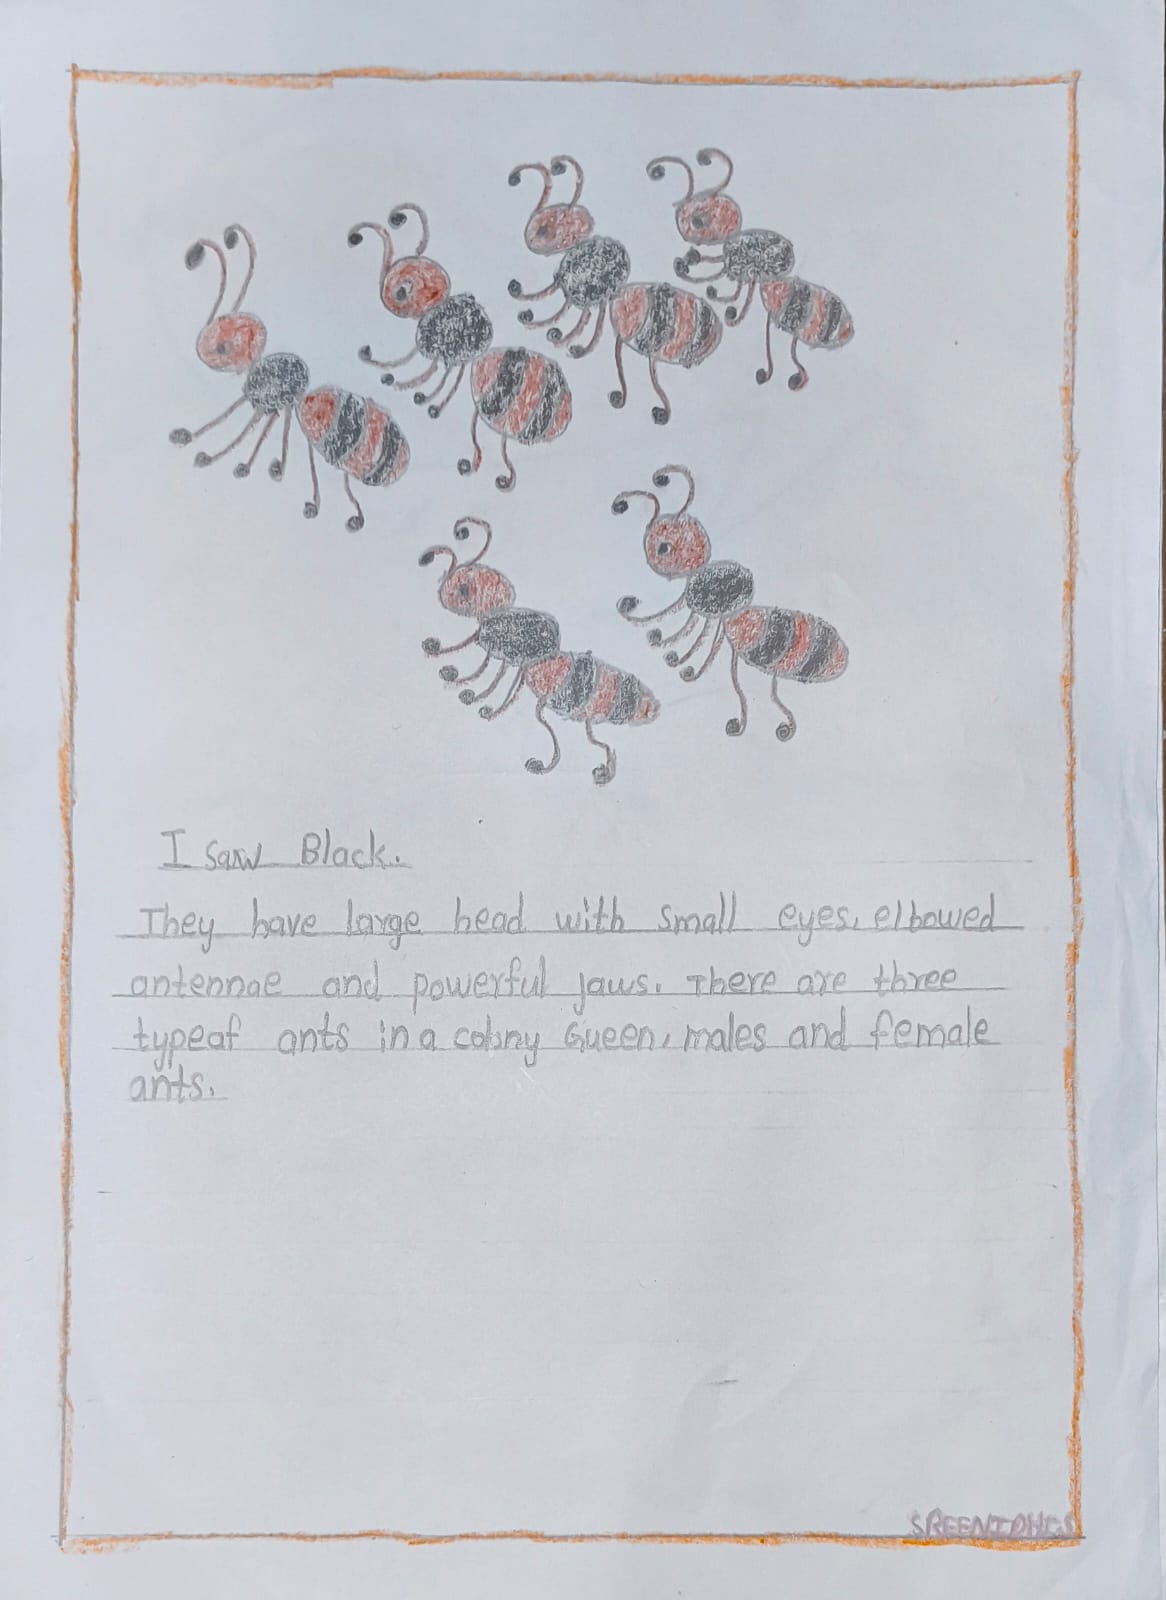 I saw Black.
They have large head with small eyes, elbowed
antennae and powerful jaws. There are three
typeof ants in a colony Gueen, males and female
ants.